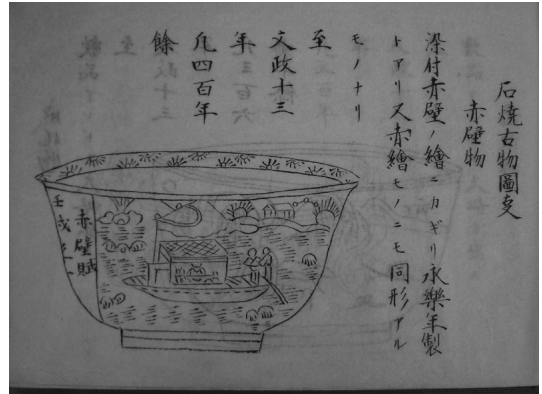 石燒古物圖攴
赤壁物
染付赤壁ノ繪ニカギリ永樂年製
トアリ又赤繪モノニモ同形アル
モノナリ
至
文政十三
年
凢四百年
餘
赤壁賦
壬戌之